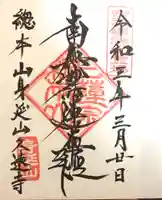 令和三年三月廿日
南無妙法蓮華経
總本山身延山久遠寺